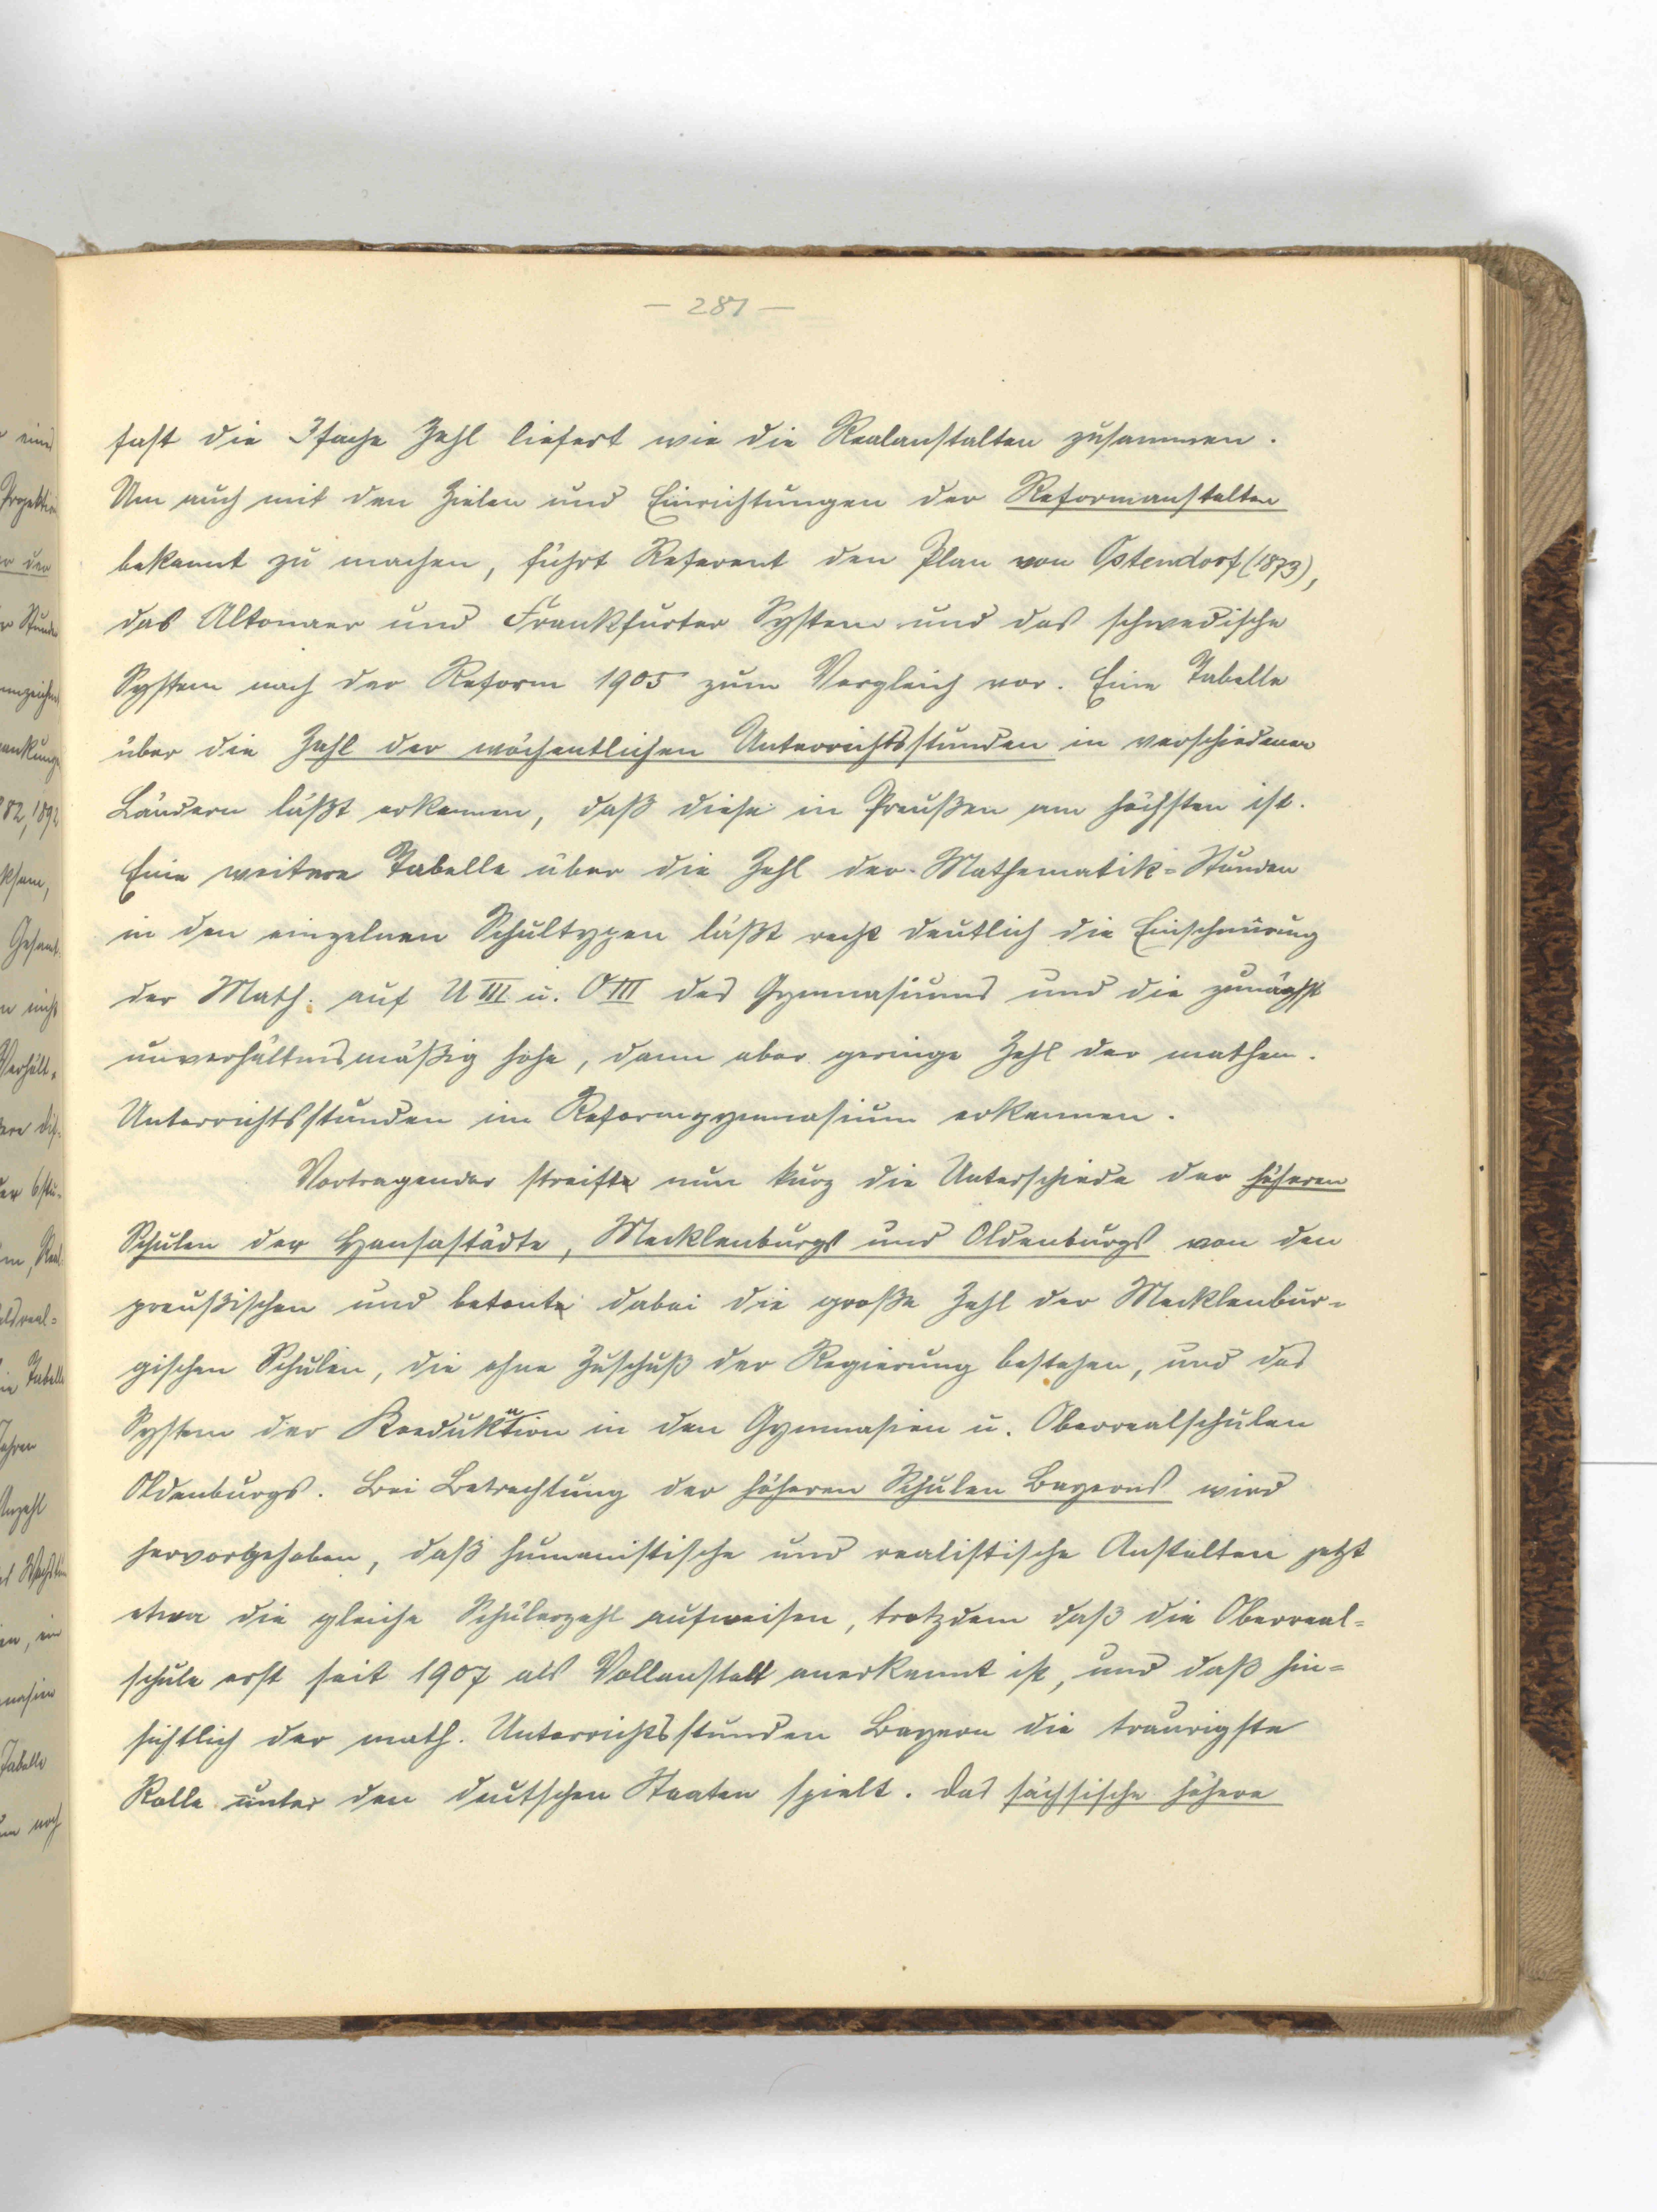 — 281 —
fast die 3fache Zahl liefert wie die Realanstalten zusammen.
Um auch mit den Zielen und Einrichtungen der Reformanstalten
bekannt zu machen, führt Referent den Plan von Ostendorf (1873),
das Altonaer und Frankfurter System und das schwedische
System nach der Reform 1905 zum Vergleich vor. Eine Tabelle
über die Zahl der wöchentlichen Unterrichtsstunden in verschiedenen
Ländern läßt erkennen, daß diese in Preußen am höchsten ist.
Eine weitere Tabelle über die Zahl der Mathematik=Stunden
in den einzelnen Schultypen läßt recht deutlich die Einschnürung
der Math. auf U III u. O III des Gymnasiums und die zunächst
unverhältnismäßig hohe, dann aber geringe Zahl der mathem.
Unterrichtsstunden im Reformgymnasium erkennen.
Vortragender streifte nun kurz die Unterschiede der höheren
Schulen der Hansastädte, Mecklenburgs und Oldenburgs von den
preußischen und betonte dabei die große Zahl der Mecklenbur-
gischen Schulen, die ohne Zuschuß der Regierung bestehen, und das
System der Koedukation in den Gymnasien u. Oberrealschulen
Oldenburgs. Bei Betrachtung der höheren Schulen Bayerns wird
hervorgehoben, daß humanistische und realistische Anstalten jetzt
etwa die gleiche Schülerzahl aufweisen, trotzdem daß die Oberreal=
schule erst seit 1907 als Vollanstalt anerkannt ist, und daß hin=
sichtlich der math. Unterrichtsstunden Bayern die traurigste
Rolle unter den deutschen Staaten spielt. Das sächsische höhere